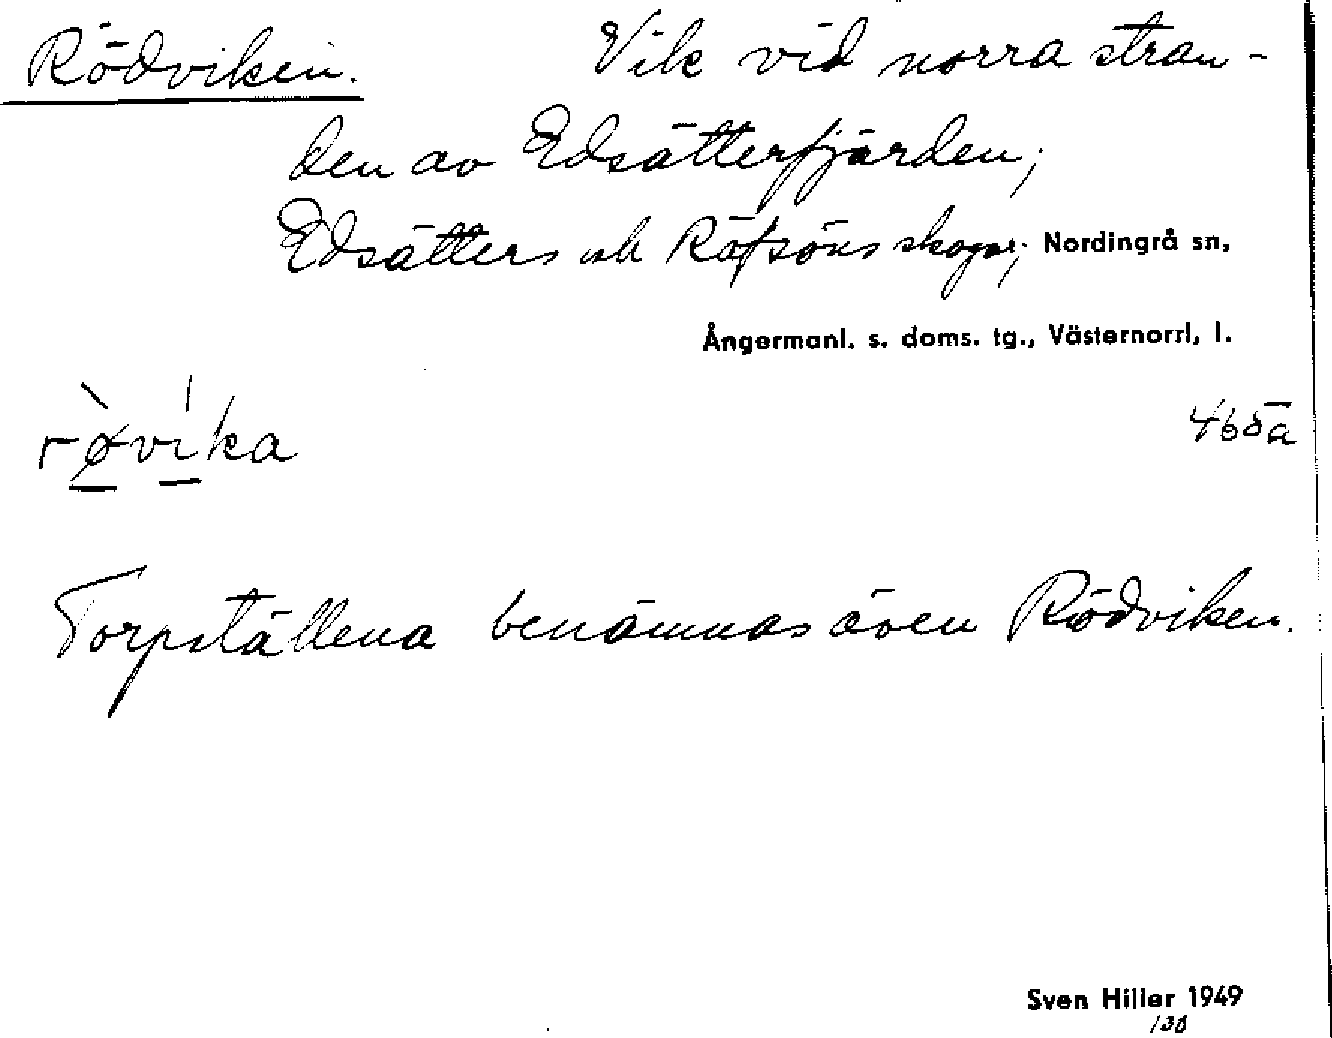 Rödviken. Vik vid norra stran-
den av Edsätterfjärden;
Edsätters och Röfsöns skogar; Nordingrå sn,
Ångermanl. s. doms. tg., Västernorrl, l.
rø̀víka
Torpställena benämnas även Rödviken.
Sven Hiller 1949